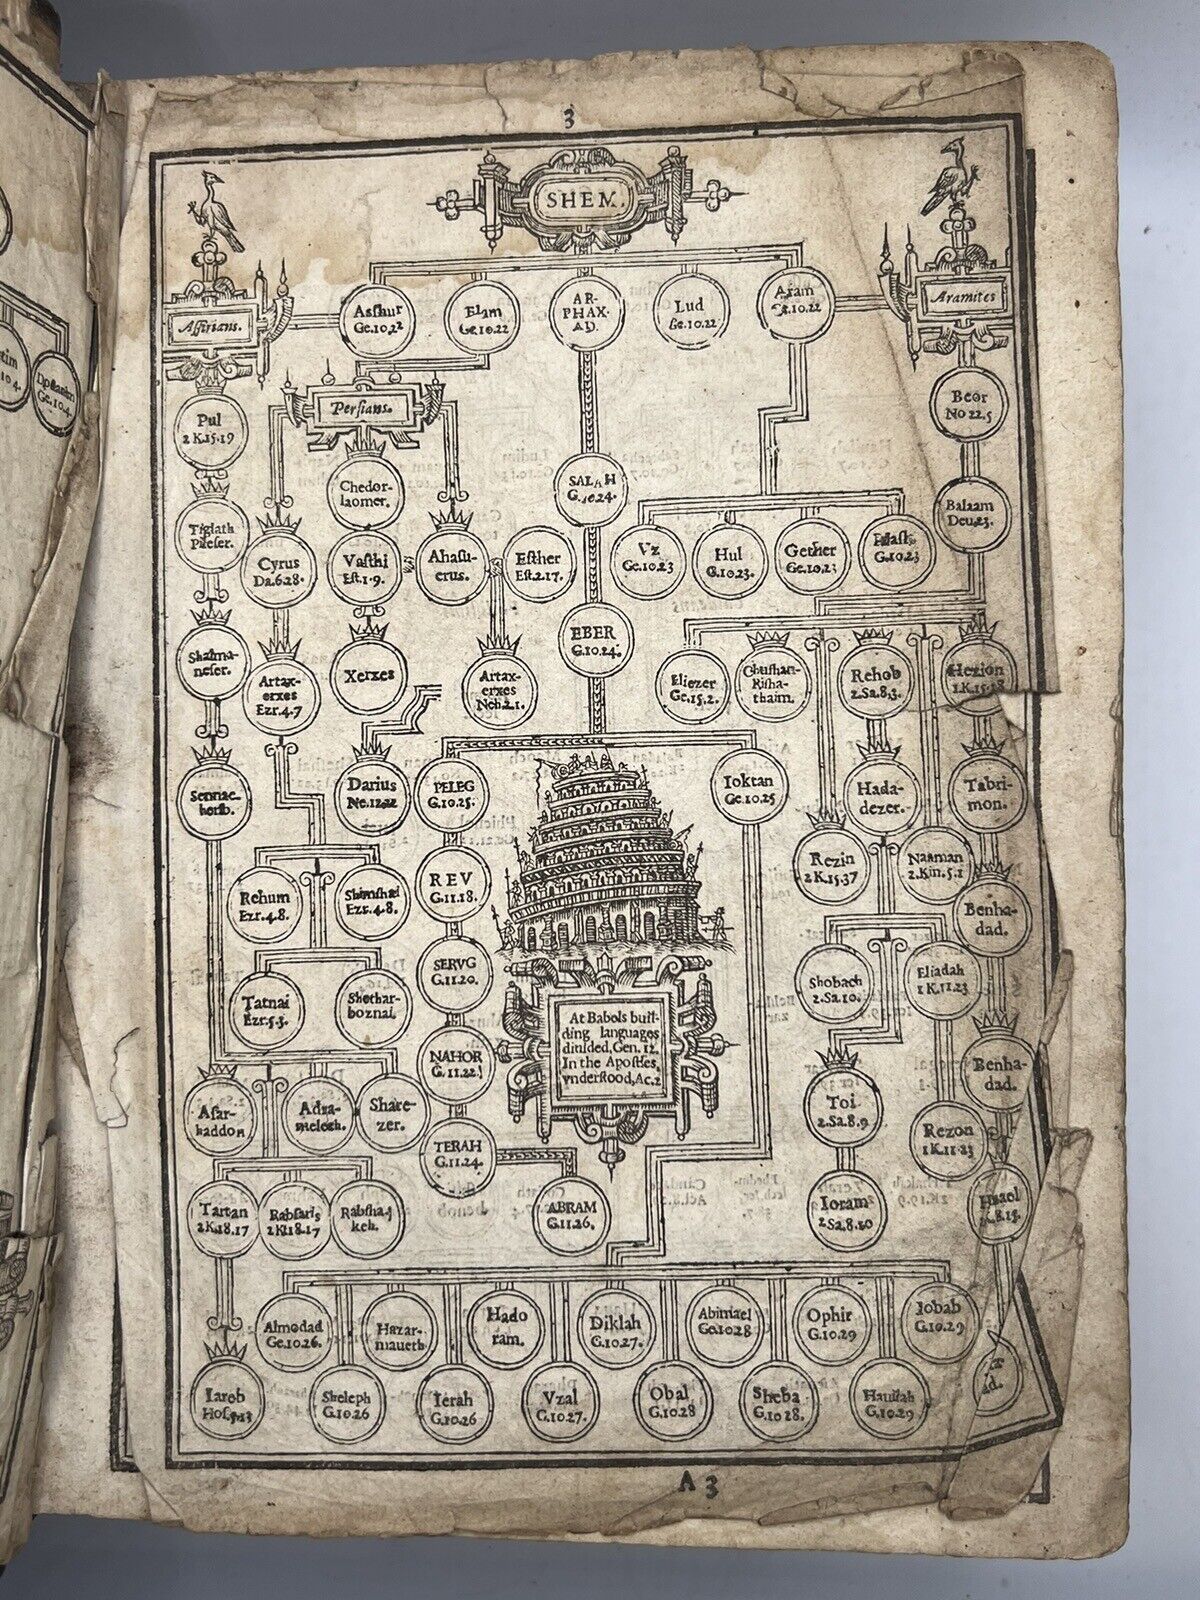 3
SHEM.
Assirians.
Asshur
Ge.10.22
Elam
Ge.10.22
AR-
PHAX-
AD.
Lud
Ge.10.22
Aram
Ge.10.22
Aramites
Pul
2 K.15.19
Persians.
Beor
No 22.5
Chedor-
laomer.
SALAH
G.10.24.
Balaam
Deu.23.
Tiglath
Pileser.
Cyrus
Da.6.28.
Vasthi
Est.1.9.
Ahasu-
erus.
Esther
Est.2.17.
Vz
Ge.10.23
Hul
G.10.23.
Gether
Ge.10.23
G.10.23
EBER
G.10.24.
Shalma-
neser.
Artax-
erxes
Ezr.4.7
Xerxes
Artax-
erxes
Neh.2.1.
Eliezer
Ge.15.2.
Chushan-
Risha-
thaim.
Rehob
2.Sa.8.3.
Hezion
1.K.15.18
Sennac-
herib.
Darius
Ne.12.22
PELEG
G.10.25.
Ioktan
Ge.10.25
Hada-
dezer.
Tabri-
mon.
Rehum
Ezr.4.8.
Shimshai
Ezr.4.8.
REV
G.11.18.
Rezin
2 K.15.37
Naaman
2.Kin.5.1
Benha-
dad.
Tatnai
Ezr.5.3.
Shethar-
boznai.
SERVG
G.11.20.
Shobach
2.Sa.10.
Eliadah
1 K.11.23
At Babels buil-
ding languages
diuided, Gen. 12.
In the Apostles,
vnderstood, Ac.2
NAHOR
G.11.22.
Benha-
dad.
Asar-
haddon
Adra-
melech.
Share-
zer.
Toi
2.Sa.8.9
Rezon
1 K.11.23
TERAH
G.11.24.
Tartan
2 K.18.17
Rabsaris
2 Ki.18.17
Rabsha-
keh.
ABRAM
G.11.26.
Ioram
2 Sa.8.10
Hazael
Almodad
Ge.10.26.
Hazar-
maueth
Hado
ram.
Diklah
G.10.27.
Abimael
Ge.10.28
Ophir
G.10.29
Iobab
G.10.29
Iareb
Hos.5.13
Sheleph
G.10.26
Ierah
G.10.26
Vzal
G.10.27.
Obal
G.10.28
Sheba
G.10.28.
Hauilah
G.10.29
A 3